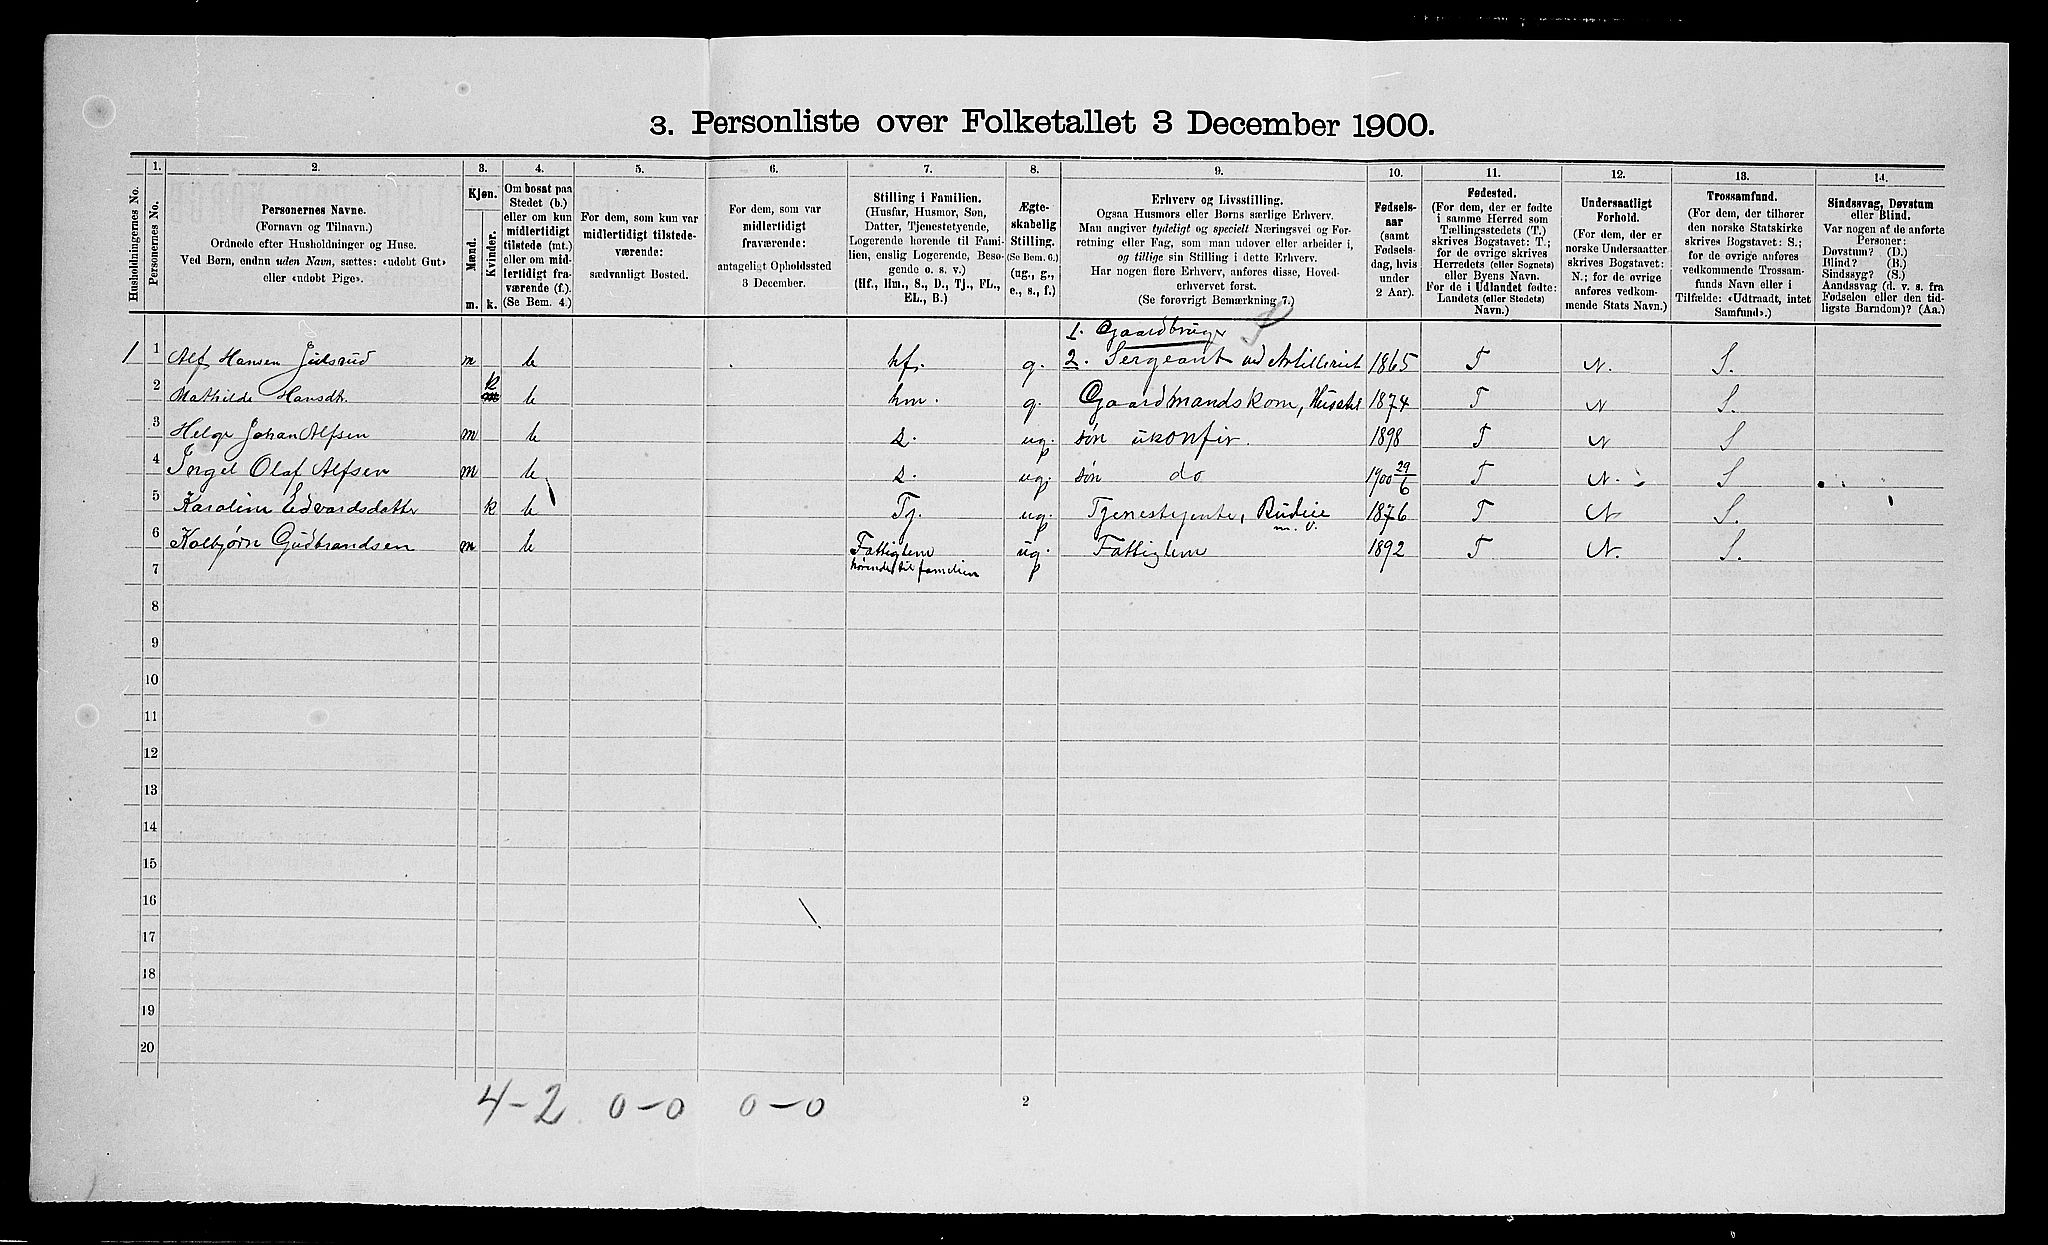 3. Personliste over Folketallet 3 December 1900.
Husholdningernes No.
1.
Personernes No.
2.
Personernes Navne.
(Fornavn og Tilnavn.)
Ordnede efter Husholdninger og Huse.
Ved Børn, endnu uden Navn, sættes: «udøbt Gut»
eller «udøbt Pige».
3.
Kjøn.
Mænd.
Kvinder.
m. k.
4.
Om bosat paa
Stedet (b.)
eller om kun
midlertidigt
tilstede (mt.)
eller om mid-
lertidigt fra-
værende (f.).
(Se Bem. 4.)
5.
For dem, som kun var
midlertidigt tilstede-
værende:
sædvanligt Bosted.
6.
For dem, som var
midlertidigt
fraværende:
antageligt Opholdssted
3 December.
7.
Stilling i Familien.
(Husfar, Husmor, Søn,
Datter, Tjenestetyende,
Logerende hørende til Fami-
lien, enslig Logerende, Besø-
gende o. s. v.)
(Hf., Hm., S., D., Tj., FL.,
EL., B.)
8.
Ægte-
skabelig
Stilling.
(Se Bem. 6.)
(ug., g.,
e., s., f.)
9.
Erhverv og Livsstilling.
Ogsaa Husmors eller Børns særlige Erhverv.
Man angiver tydeligt og specielt Næringsvei og For-
retning eller Fag, som man udover eller arbeider i,
og tillige sin Stilling i dette Erhverv.
Har nogen flere Erhverv, anføres disse, Hoved-
erhvervet først.
(Se forøvrigt Bemærkning 7.)
10.
Fødsels-
aar
(samt
Fødsels-
dag, hvis
under
2 Aar).
11.
Fødested.
(For dem, der er fødte
i samme Herred som
Tællingsstedets (T.)
skrives Bogstavet: T.;
for de øvrige skrives
Herredets (eller Sognets)
eller Byens Navn.
For de i Udlandet fødte:
Landets (eller Stedets)
Navn.)
12.
Undersaatligt
Forhold.
(For dem, der er
norske Undersaatter
skrives Bogstavet:
N.; for de øvrige
anføres vedkom-
mende Stats Navn.)
13.
Trossamfund.
(For dem, der tilhører
den norske Statskirke
skrives Bogstavet: S.;
for de øvrige anføres
vedkommende Trossam-
funds Navn eller i
Tilfælde: «Udtraadt, intet
Samfund».)
14.
Sindssvag, Døvstum
eller Blind.
Var nogen af de anførte
Personer:
Døvstum? (D.)
Blind? (B.)
Sindssyg? (S.)
Aandssvag (d. v. s. fra
Fødselen eller den tid-
ligste Barndom)? (Aa.)
1. Gaardbruger
1 1 Alf Hansen Julsrud m b hf. g. 2. Sergeant ved Artilleriet 1865 T N. S.
2 Mathilde Hansdt. k b hm. g. Gaardmandskone, 1874 T N S.
3 Helge Johan Alfsen m b s. ug. søn ukonfir. 1898 T N S
4 Ingel Olaf Alfsen m b s. ug. søn do 1900 29/6 T N. S
5 Karoline Edvardsdatter k b Tj. ug. Tjenestejente, Budeie m. v. 1876 T N S.
6 Kolbjørn Gudbrandsen m b Fattiglem ug. Fattiglem 1892 T N. S.
7 hørende til familien
8
9
10
11
12
13
14
15
16
17
18
19
20
4-2 0-0 0-0
2